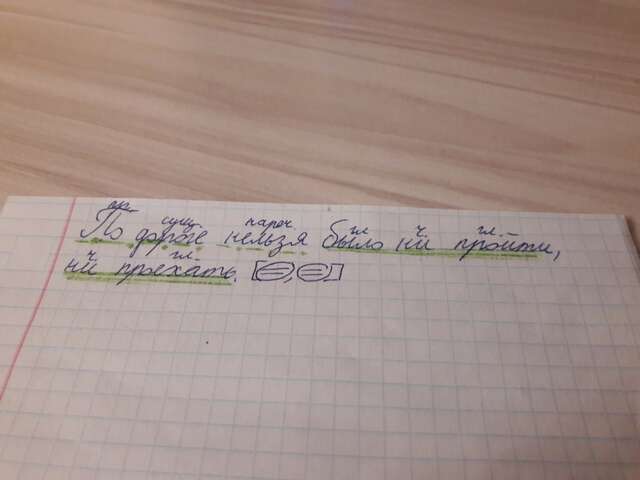 пр. сущ. нареч гл. ч. гл.
По дороге нельзя было ни пройти,
ч. гл.
ни проехать.